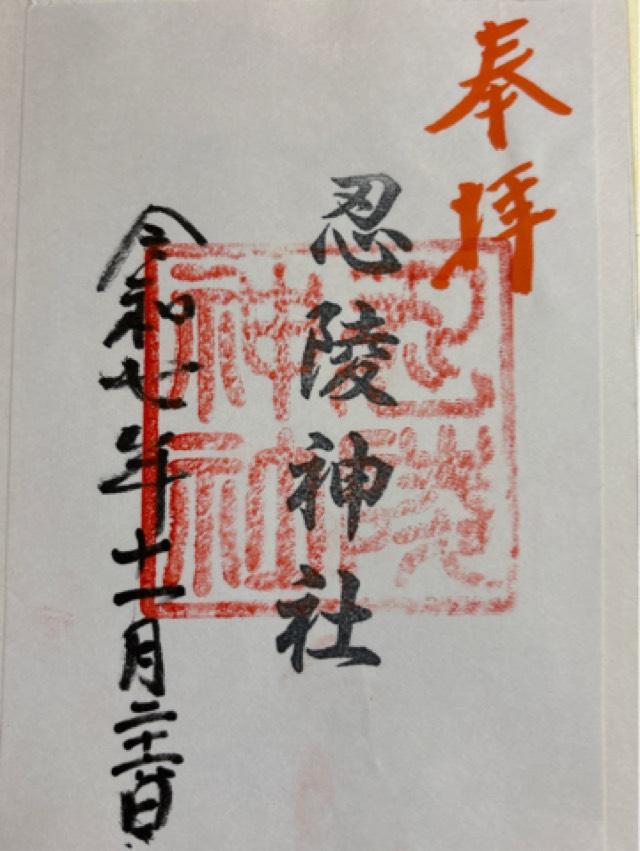 奉拝
忍陵神社
令和七年十一月二十二日
忍陵
神社